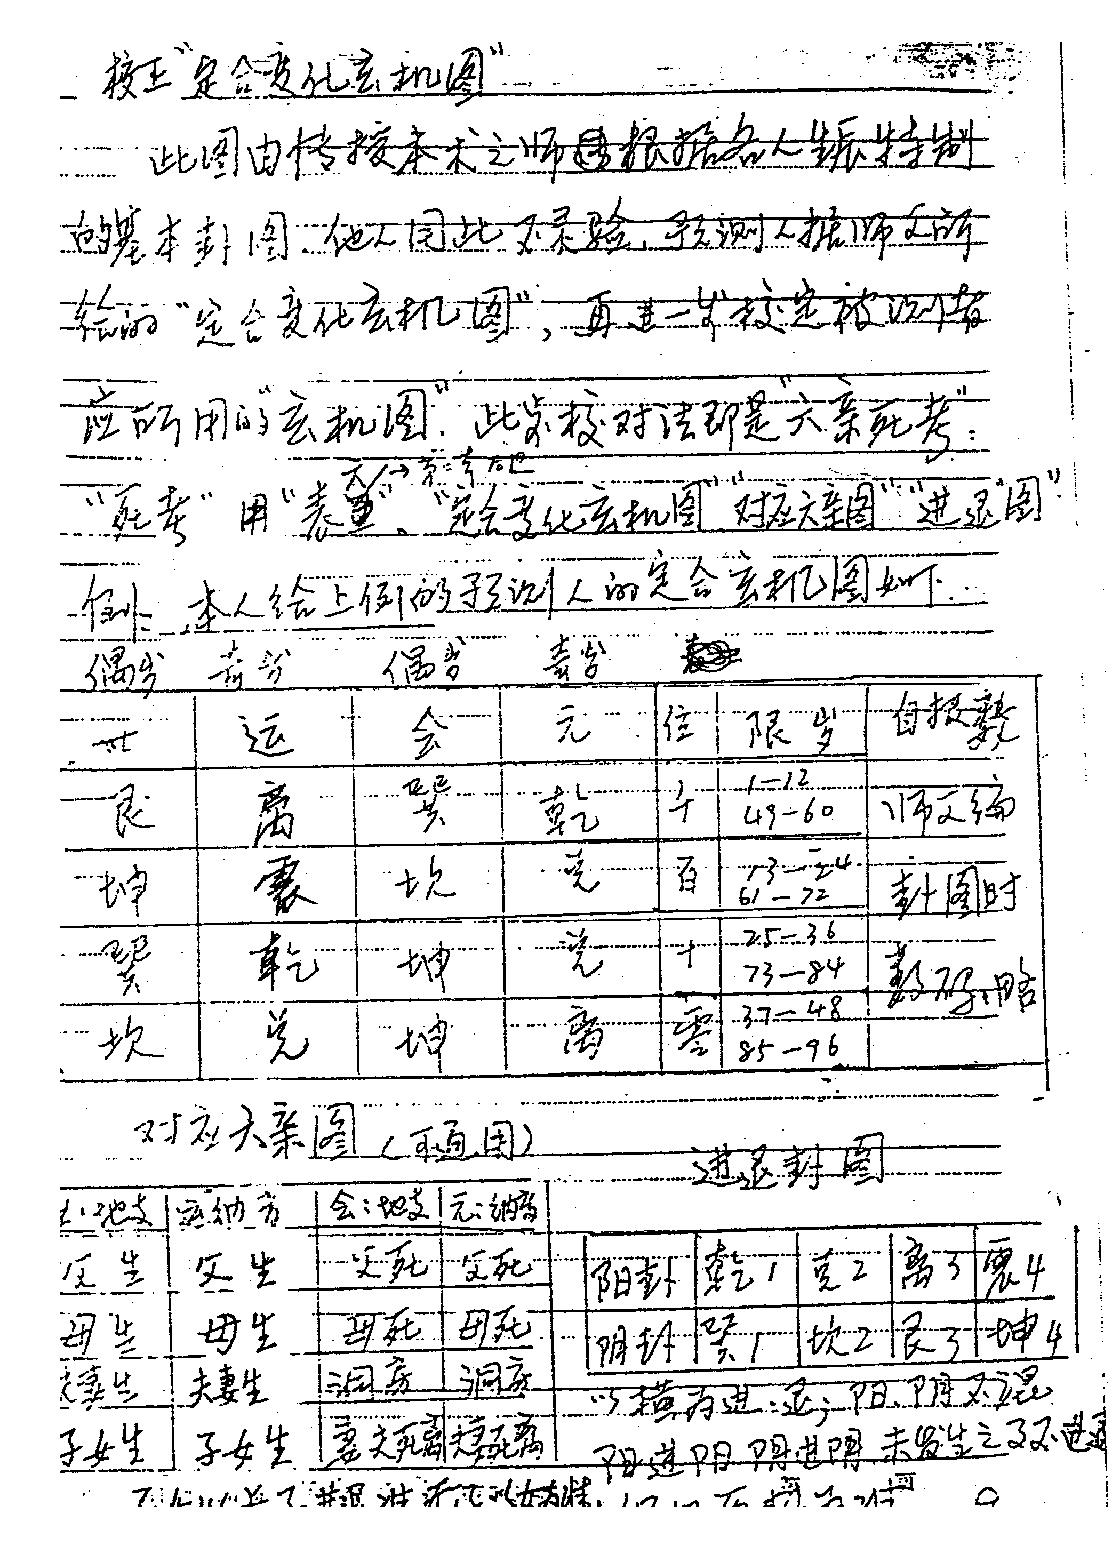 校正“定合变化玄机图”
此图由传授本术之师 根据各人生辰特制
的基本卦图,他人因此不灵验,预测人据师父所
绘的“定合变化玄机图”,再进一步校定被测者
应所用的“玄机图”.此 校对法即是“六亲死考”:
“死考”用“表 ”、“定合变化玄机图”“对应六亲图”“进退图”
例:本人给上例的预测人的定合玄机图如下:
偶岁 奇岁 偶岁 奇岁
世 运 会 元 位 限岁 自报数
艮 离 巽 乾 千 1—12 49—60 师父编
坤 震 坎 兑 百 13—24 61—72 卦图时
巽 乾 坤 兑 十 25—36 73—84 数码:略
坎 兑 坤 离 零 37—48 85—96
对应六亲图(可通用)
进退卦图
世:地支 运纳音 会:地支 元:纳音
父生 父生 父死 父死
母生 母生 母死 母死
夫妻生 夫妻生 洞房 洞房
子女生 子女生 妻夫死离 夫妻死离
阳卦 乾1 兑2 离3 震4
阴卦 巽1 坎2 艮3 坤4
以横为进:退;阳、阴不混
阳进阳 阴进阴 未发生之子不进退